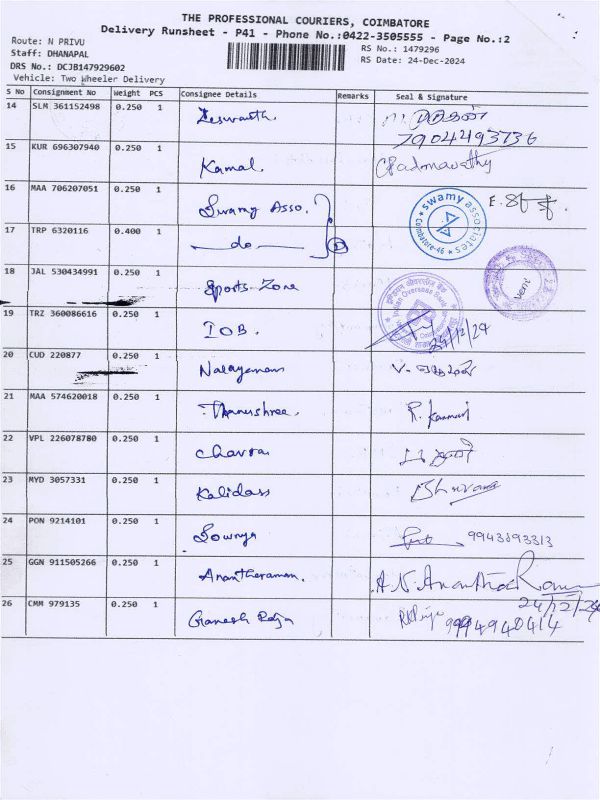 THE PROFESSIONAL COURIERS, COIMBATORE
Delivery Runsheet - P41 - Phone No.:0422-3505555 - Page No.:2
Route: N PRIVU
Staff: DHANAPAL
DRS No.: DCJB147929602
Vehicle: Two Wheeler Delivery
RS No.: 1479296
RS Date: 24-Dec-2024
S No Consignment No Weight PCS Consignee Details Remarks Seal & Signature
14 SLM 361152498 0.250 1
7904493736
15 KUR 696307940 0.250 1 Kamal. CPadmavathy
16 MAA 706207051 0.250 1 Swamy Asso. swamy associates Coimbatore-46
17 TRP 6320116 0.400 1 do
18 JAL 530434991 0.250 1 Sports Zone
19 TRZ 360086616 0.250 1 IOB. Indian Overseas Bank 24/12/24
20 CUD 220877 0.250 1
21 MAA 574620018 0.250 1 Thanushree.
22 VPL 226078780 0.250 1
23 MYD 3057331 0.250 1 Kalidass
24 PON 9214101 0.250 1 Sowmya
25 GGN 911505266 0.250 1 Anantharaman.
24/12/24
26 CMM 979135 0.250 1 Ganesh Raja 9994940414